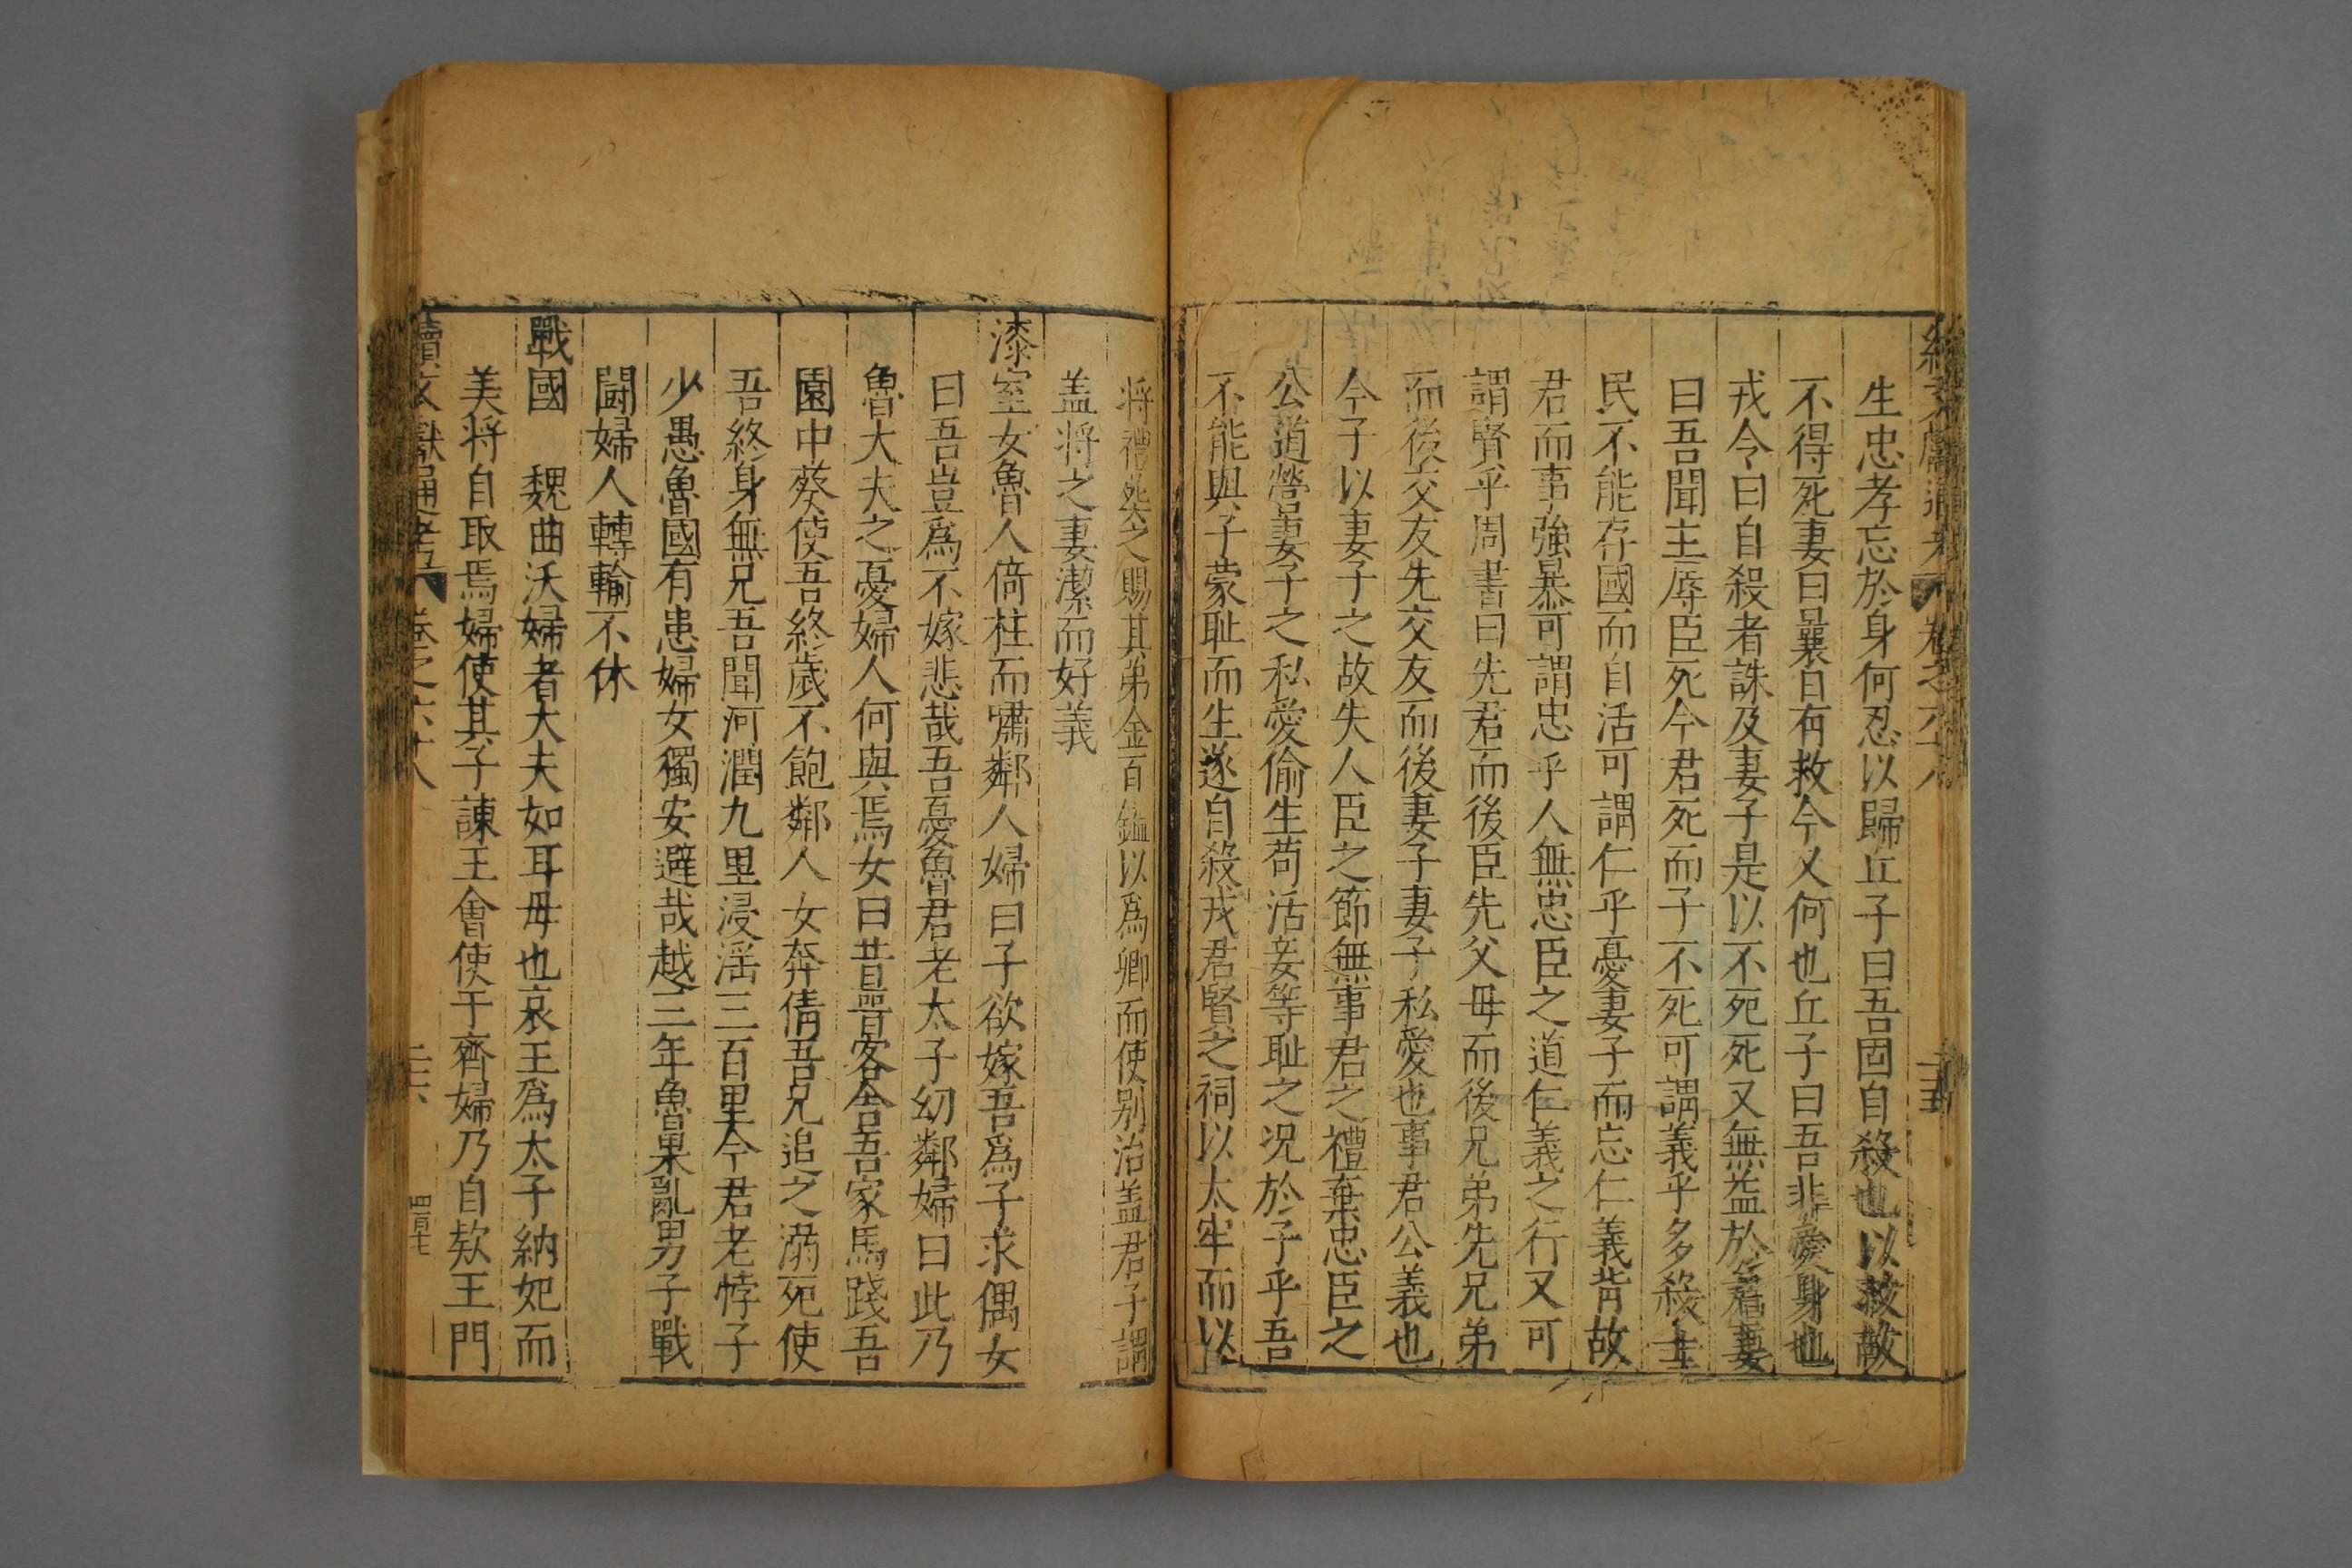 生忠孝忘於身何忍以歸丘子曰吾固自殺也以救敵
不得死妻曰曩日有救今又何也丘子曰吾非愛身也
戎令曰自殺者誅及妻子是以不死死又無益於君妻
曰吾聞主辱臣死今君死而子不死可謂義乎多殺士
民不能存國而自活可謂仁乎憂妻子而忘仁義背故
君而事強暴可謂忠乎人無忠臣之道仁義之行又可
謂賢乎周書曰先君而後臣先父母而後兄弟先兄弟
而後交友先交友而後妻子妻子私愛也事君公義也
今子以妻子之故失人臣之節無事君之禮棄忠臣之
公道營妻子之私愛偷生苟活妾等耻之况於子乎吾
不能與子蒙耻而生遂自殺戎君賢之祠以太牢而以
將禮葬之賜其弟金百鎰以為卿而使别治盖君子謂
盖將之妻潔而好義
漆室女魯人倚柱而嘯鄰人婦曰子欲嫁吾為子求偶女
曰吾豈為不嫁悲哉吾憂魯君老太子幼鄰婦曰此乃
魯大夫之憂婦人何與焉女曰昔晉客舍吾家馬踐吾
園中葵使吾終歲不飽鄰人女奔倩吾兄追之溺死使
吾終身無兄吾聞河潤九里浸淫三百里今君老悖子
少愚魯國有患婦女獨安避哉越三年魯果亂男子戰
鬬婦人轉輸不休
戰國　魏曲沃婦者大夫如耳母也哀王為太子納妃而
美將自取焉婦使其子諫王會使于齊婦乃自欵王門
續文獻通考 卷之六十八